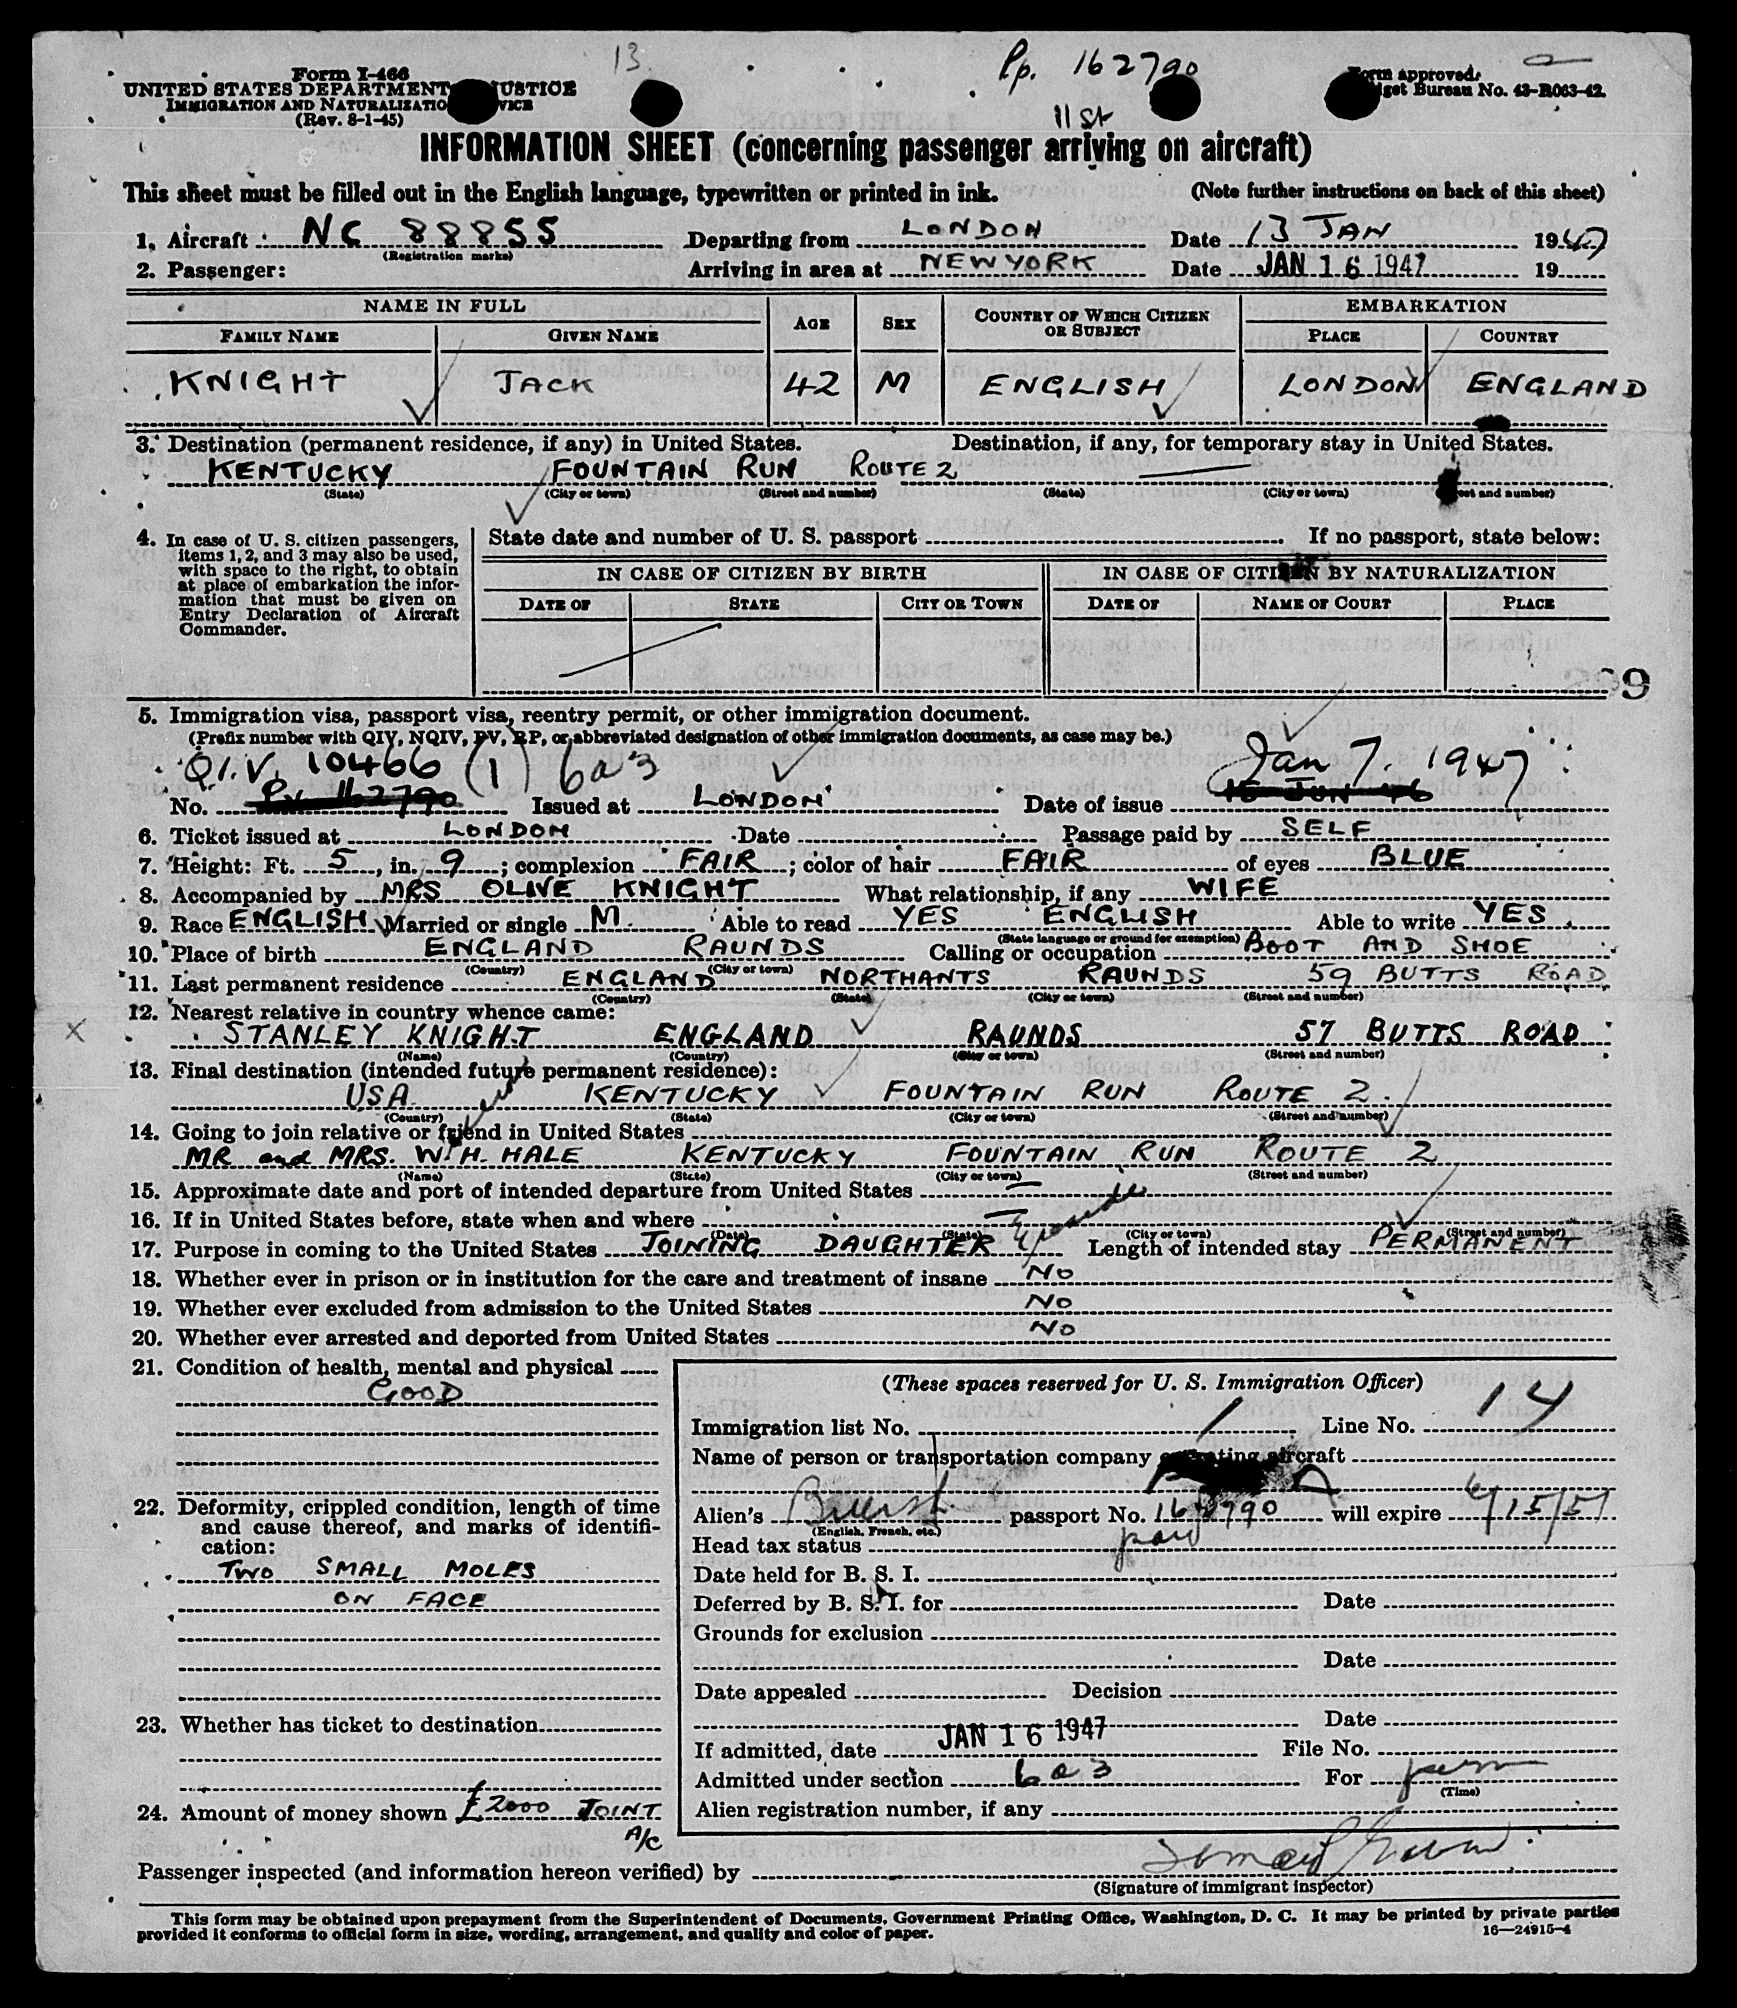 13.
Pp. 162790
Form I-466
UNITED STATES DEPARTMENT JUSTICE
IMMIGRATION AND NATURALIZATIO VICE
(Rev. 8-1-45)
Form approved.
get Bureau No. 43-R063-42.
11 St
INFORMATION SHEET (concerning passenger arriving on aircraft)
This sheet must be filled out in the English language, typewritten or printed in ink. (Note further instructions on back of this sheet)
1. Aircraft NC 88855 Departing from LONDON Date 13 JAN 1947
(Registration marks)
2. Passenger: Arriving in area at NEW YORK Date JAN 16 1947 19
NAME IN FULL AGE SEX COUNTRY OF WHICH CITIZEN OR SUBJECT EMBARKATION
FAMILY NAME GIVEN NAME PLACE COUNTRY
KNIGHT JACK 42 M ENGLISH LONDON ENGLAND
3. Destination (permanent residence, if any) in United States. Destination, if any, for temporary stay in United States.
KENTUCKY FOUNTAIN RUN ROUTE 2
(State) (City or town) (Street and number) (State) (City or town) et and number)
4. In case of U. S. citizen passengers,
items 1, 2, and 3 may also be used,
with space to the right, to obtain
at place of embarkation the infor-
mation that must be given on
Entry Declaration of Aircraft
Commander.
State date and number of U. S. passport If no passport, state below:
IN CASE OF CITIZEN BY BIRTH IN CASE OF CITIZEN BY NATURALIZATION
DATE OF STATE CITY OR TOWN DATE OF NAME OF COURT PLACE
9
5. Immigration visa, passport visa, reentry permit, or other immigration document.
(Prefix number with QIV, NQIV, PV, RP, or abbreviated designation of other immigration documents, as case may be.)
Q.I.V. 10466 (1) 6a3 Jan 7. 1947
No. Pv 162790 Issued at LONDON Date of issue 15 JUN 46
6. Ticket issued at LONDON Date Passage paid by SELF
7. Height: Ft. 5, in. 9; complexion FAIR; color of hair FAIR of eyes BLUE
8. Accompanied by MRS OLIVE KNIGHT What relationship, if any WIFE
9. Race ENGLISH Married or single M. Able to read YES ENGLISH Able to write YES
(State language or ground for exemption)
10. Place of birth ENGLAND RAUNDS Calling or occupation BOOT AND SHOE
(Country) (City or town)
11. Last permanent residence ENGLAND NORTHANTS RAUNDS 59 BUTTS ROAD
(Country) (State) (City or town) (Street and number)
12. Nearest relative in country whence came:
X STANLEY KNIGHT ENGLAND RAUNDS 57 BUTTS ROAD
(Name) (Country) (City or town) (Street and number)
13. Final destination (intended future permanent residence):
USA KENTUCKY FOUNTAIN RUN ROUTE 2.
(Country) (State) (City or town) (Street and number)
14. Going to join relative or friend in United States
MR and MRS. W. H. HALE KENTUCKY FOUNTAIN RUN ROUTE 2
(Name) (State) (City or town) (Street and number)
15. Approximate date and port of intended departure from United States
16. If in United States before, state when and where
(Date) (State) (City or town) (Street and number)
17. Purpose in coming to the United States JOINING DAUGHTER Length of intended stay PERMANENT
18. Whether ever in prison or in institution for the care and treatment of insane NO
19. Whether ever excluded from admission to the United States NO
20. Whether ever arrested and deported from United States NO
21. Condition of health, mental and physical
GOOD
22. Deformity, crippled condition, length of time
and cause thereof, and marks of identifi-
cation:
TWO SMALL MOLES
ON FACE
23. Whether has ticket to destination
24. Amount of money shown £2000 JOINT
A/C
(These spaces reserved for U. S. Immigration Officer)
Immigration list No. 1 Line No. 14
Name of person or transportation company operating aircraft
Alien's British passport No. 162790 will expire 6/15/51
(English, French, etc.)
Head tax status paid
Date held for B. S. I.
Deferred by B. S. I. for Date
Grounds for exclusion
Date
Date appealed Decision
Date
If admitted, date JAN 16 1947 File No.
Admitted under section 6a3 For perm
(Time)
Alien registration number, if any
Passenger inspected (and information hereon verified) by
(Signature of immigrant inspector)
This form may be obtained upon prepayment from the Superintendent of Documents, Government Printing Office, Washington, D. C. It may be printed by private parties
provided it conforms to official form in size, wording, arrangement, and quality and color of paper. 16—24915-4